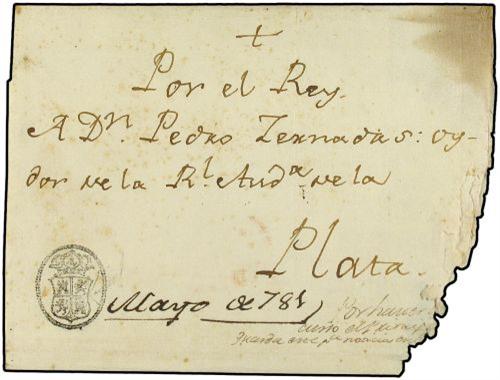 +
Por el Rey.
A Dn. Pedro Zernadas: oy-
dor de la Rl. Auda. de la
Plata.
Mayo de 781
Por haver